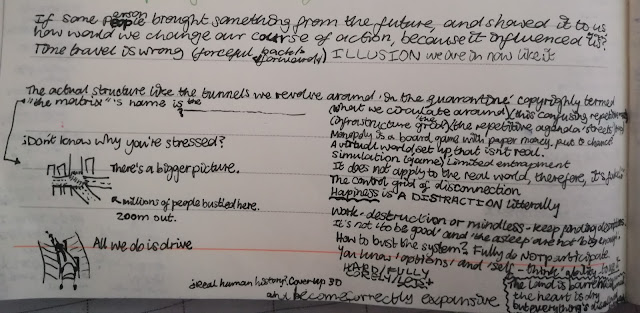 If some person brought something from the future, and showed it to us
how would we change our course of action, because it influenced us?
Time travel is wrong (forceful backwards/forwards) ILLUSION we are in now like it
The actual structure like the tunnels we revolve around 'in the quarantine' copyrightly termed
"the matrix"'s name is the
(what we circulate around)/this confusing
(infrastructure the grid)/the repetitive, agenda 'streets'
Monopoly is a board game with paper money, put to chance
A virtual world set up that isn't real.
Simulation (game) Limited entrapment
It does not apply to the real world, therefore, it's
The control grid of disconnection
Happiness is A DISTRACTION Litterally
¿Don't know why you're stressed?
There's a bigger picture.
millions of people bustled here.
zoom out.
All we do is drive
Work - destruction or mindless - keep
It's not 'to be good' and 'the asleep' are not
How to bust the system? Fully do NOT participate
You have 'options' and 'self - think' ability
HARD/FULLY
The Land is barren
the heart is dry
but everything's
¿Real human history? Cover-up 3D
become correctly expansive